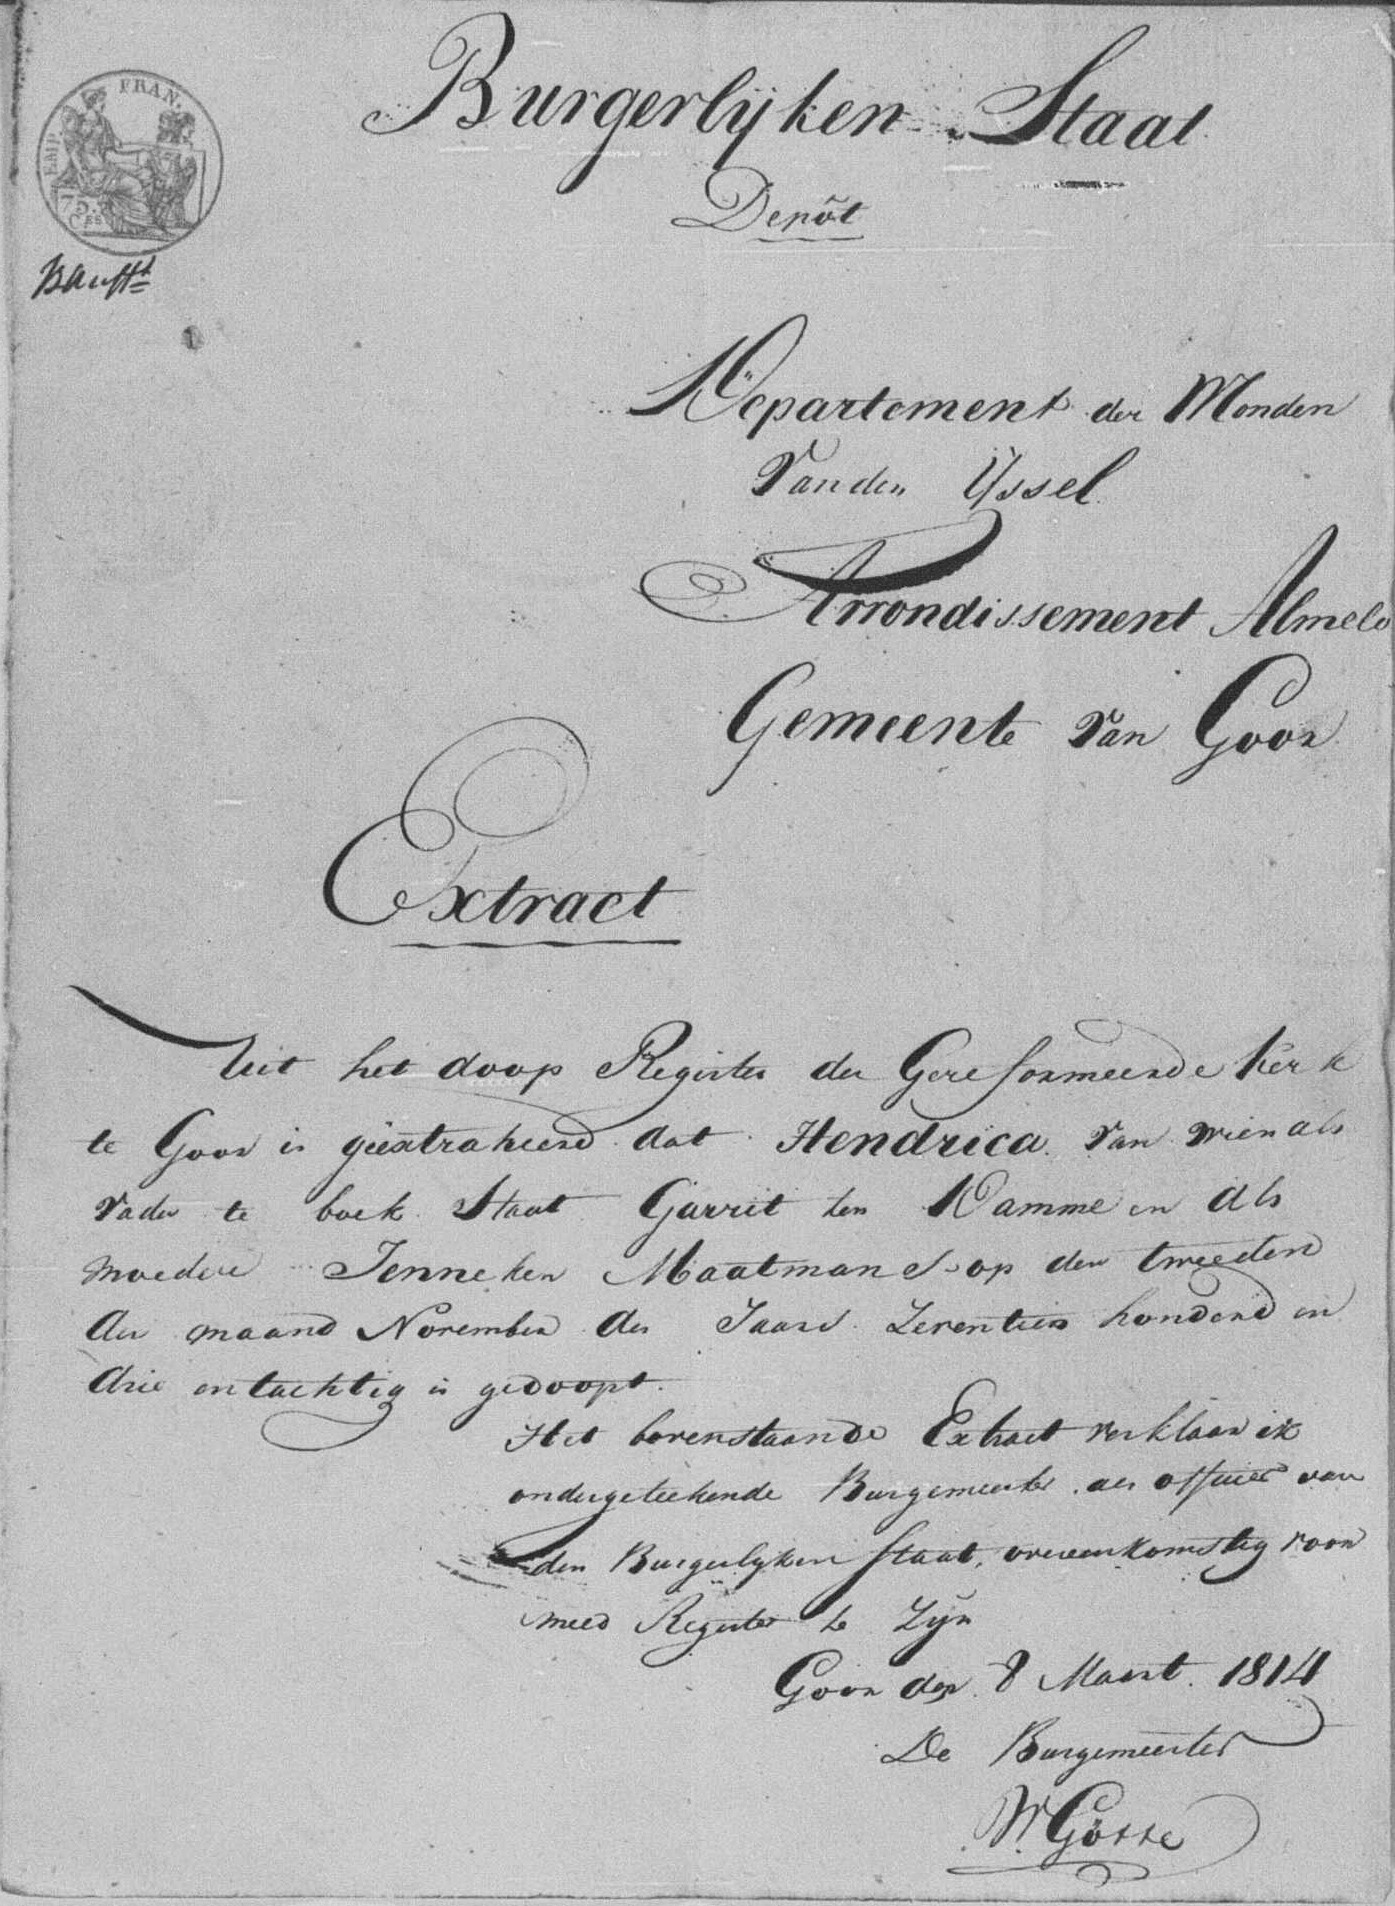 EMP. FRAN.
75 CES
Burgerlijken Staat
Depôt
Departement der Monden
van den IJssel
Arrondissement Almelo
Gemeente van Goor
Extract
Uit het doop Register der Gereformeerde Kerk
te Goor is geëxtraheerd dat Hendrica van wien als
vader te boek staat Garrit ten Damme en als
moeder Jenneken Maatmans op den tweeden
der maand November des Jaars Zeventien honderd en
drie en tachtig is gedoopt.
Het bovenstaande Extract verklaar ik
ondergeteekende Burgemeester als officier van
den Burgerlyken Staat, overeenkomstig voor
meld Register te Zyn
Goor den 8 Maart 1814
De Burgemeester
W Gösse